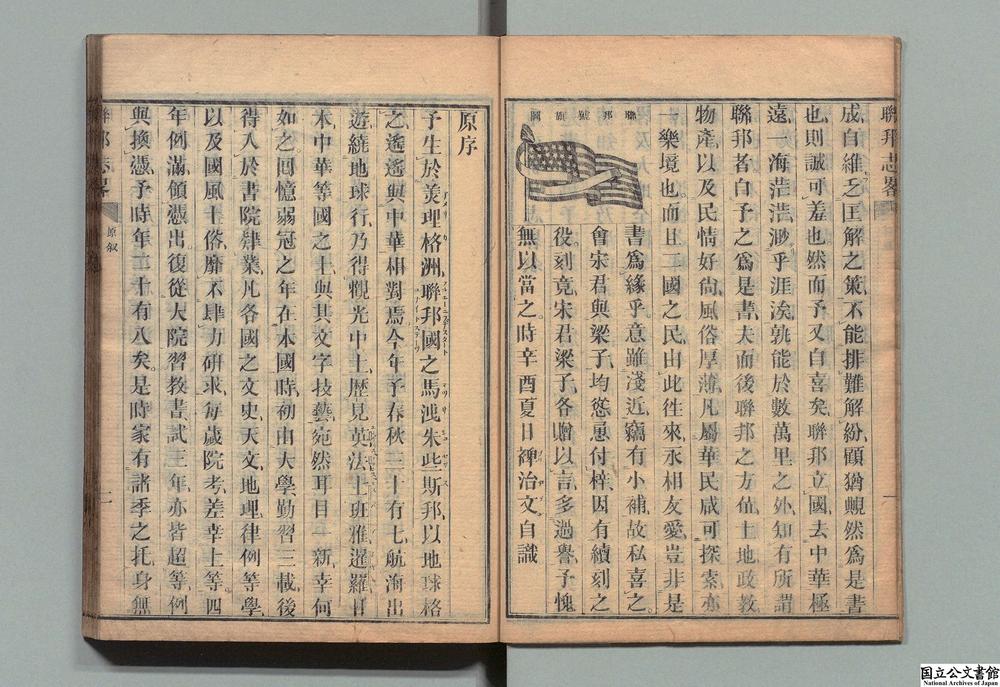 聯邦志畧
成自維乏匡解之策不能排難解紛顧猶靦然爲是書
也則誠可羞也然而予又自喜矣聯邦立國去中華極
遠一海浩浩渺乎涯涘孰能於數萬里之外知有所謂
聯邦者自予之爲是書夫而後聯邦之方位土地政教
物產以及民情好尙風俗厚薄凡屬華民咸可探索亦
一樂境也而且二國之民由此徃來永相友愛豈非是
聯邦號旗圖
書爲緣乎意雖淺近竊有小補故私喜之
會宋君與梁子均慫恿付梓因有續刻之
役刻竟宋君梁子各贈以言多過譽予愧
無以當之時辛酉夏日裨治文自識
一
原序
予生於美理格洲聯邦國之馬洩朱些斯邦以地球格
之遙遙與中華相對焉今年予春秋三十有七航海出
遊繞地球行乃得觀光中土歷見英法土班雅暹羅日
本中華等國之士與其文字技藝宛然耳目一新幸何
如之囘憶弱冠之年在本國時初由大學勤習三載後
得入於書院肄業凡各國之文史天文地理律例等學
以及國風土俗靡不肆力硏求每歲院考差幸上等四
年例滿領憑出復從大院習教書試三年亦皆超等例
與換憑予時年二十有八矣是時家有諸季之托身無
聯邦志畧
原叙
二
国立公文書館
National Archives of Japan